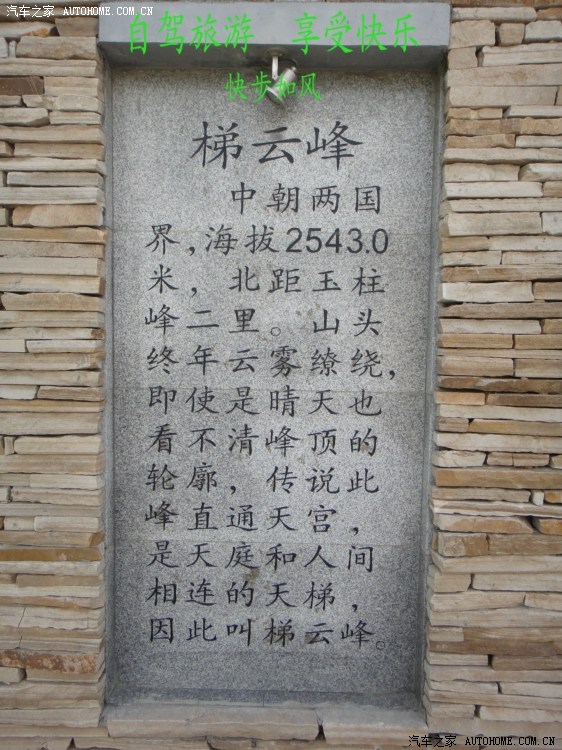 汽车之家 AUTOHOME.COM.CN
自驾旅游 享受快乐
快步如风
梯云峰
中朝两国
界,海拔2543.0
米,北距玉柱
峰二里。山头
终年云雾缭绕,
即使是晴天也
看不清峰顶的
轮廓,传说此
峰直通天宫,
是天庭和人间
相连的天梯,
因此叫梯云峰。
汽车之家 AUTOHOME.COM.CN